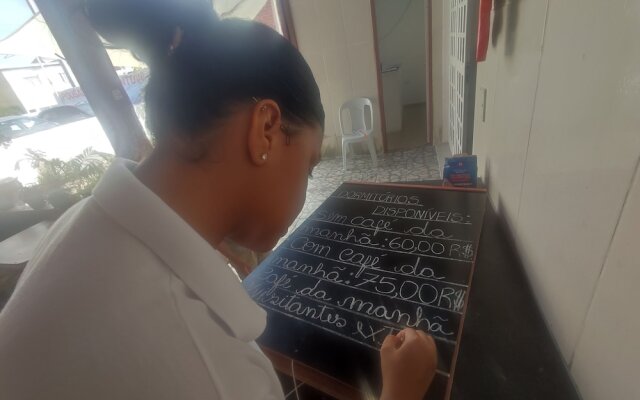 DORMITÓRIOS
DISPONÍVEIS:
Sem café da
manhã: 60,00 R$
Com café da
manhã: 75,00R$
Café da manhã
visitantes ext